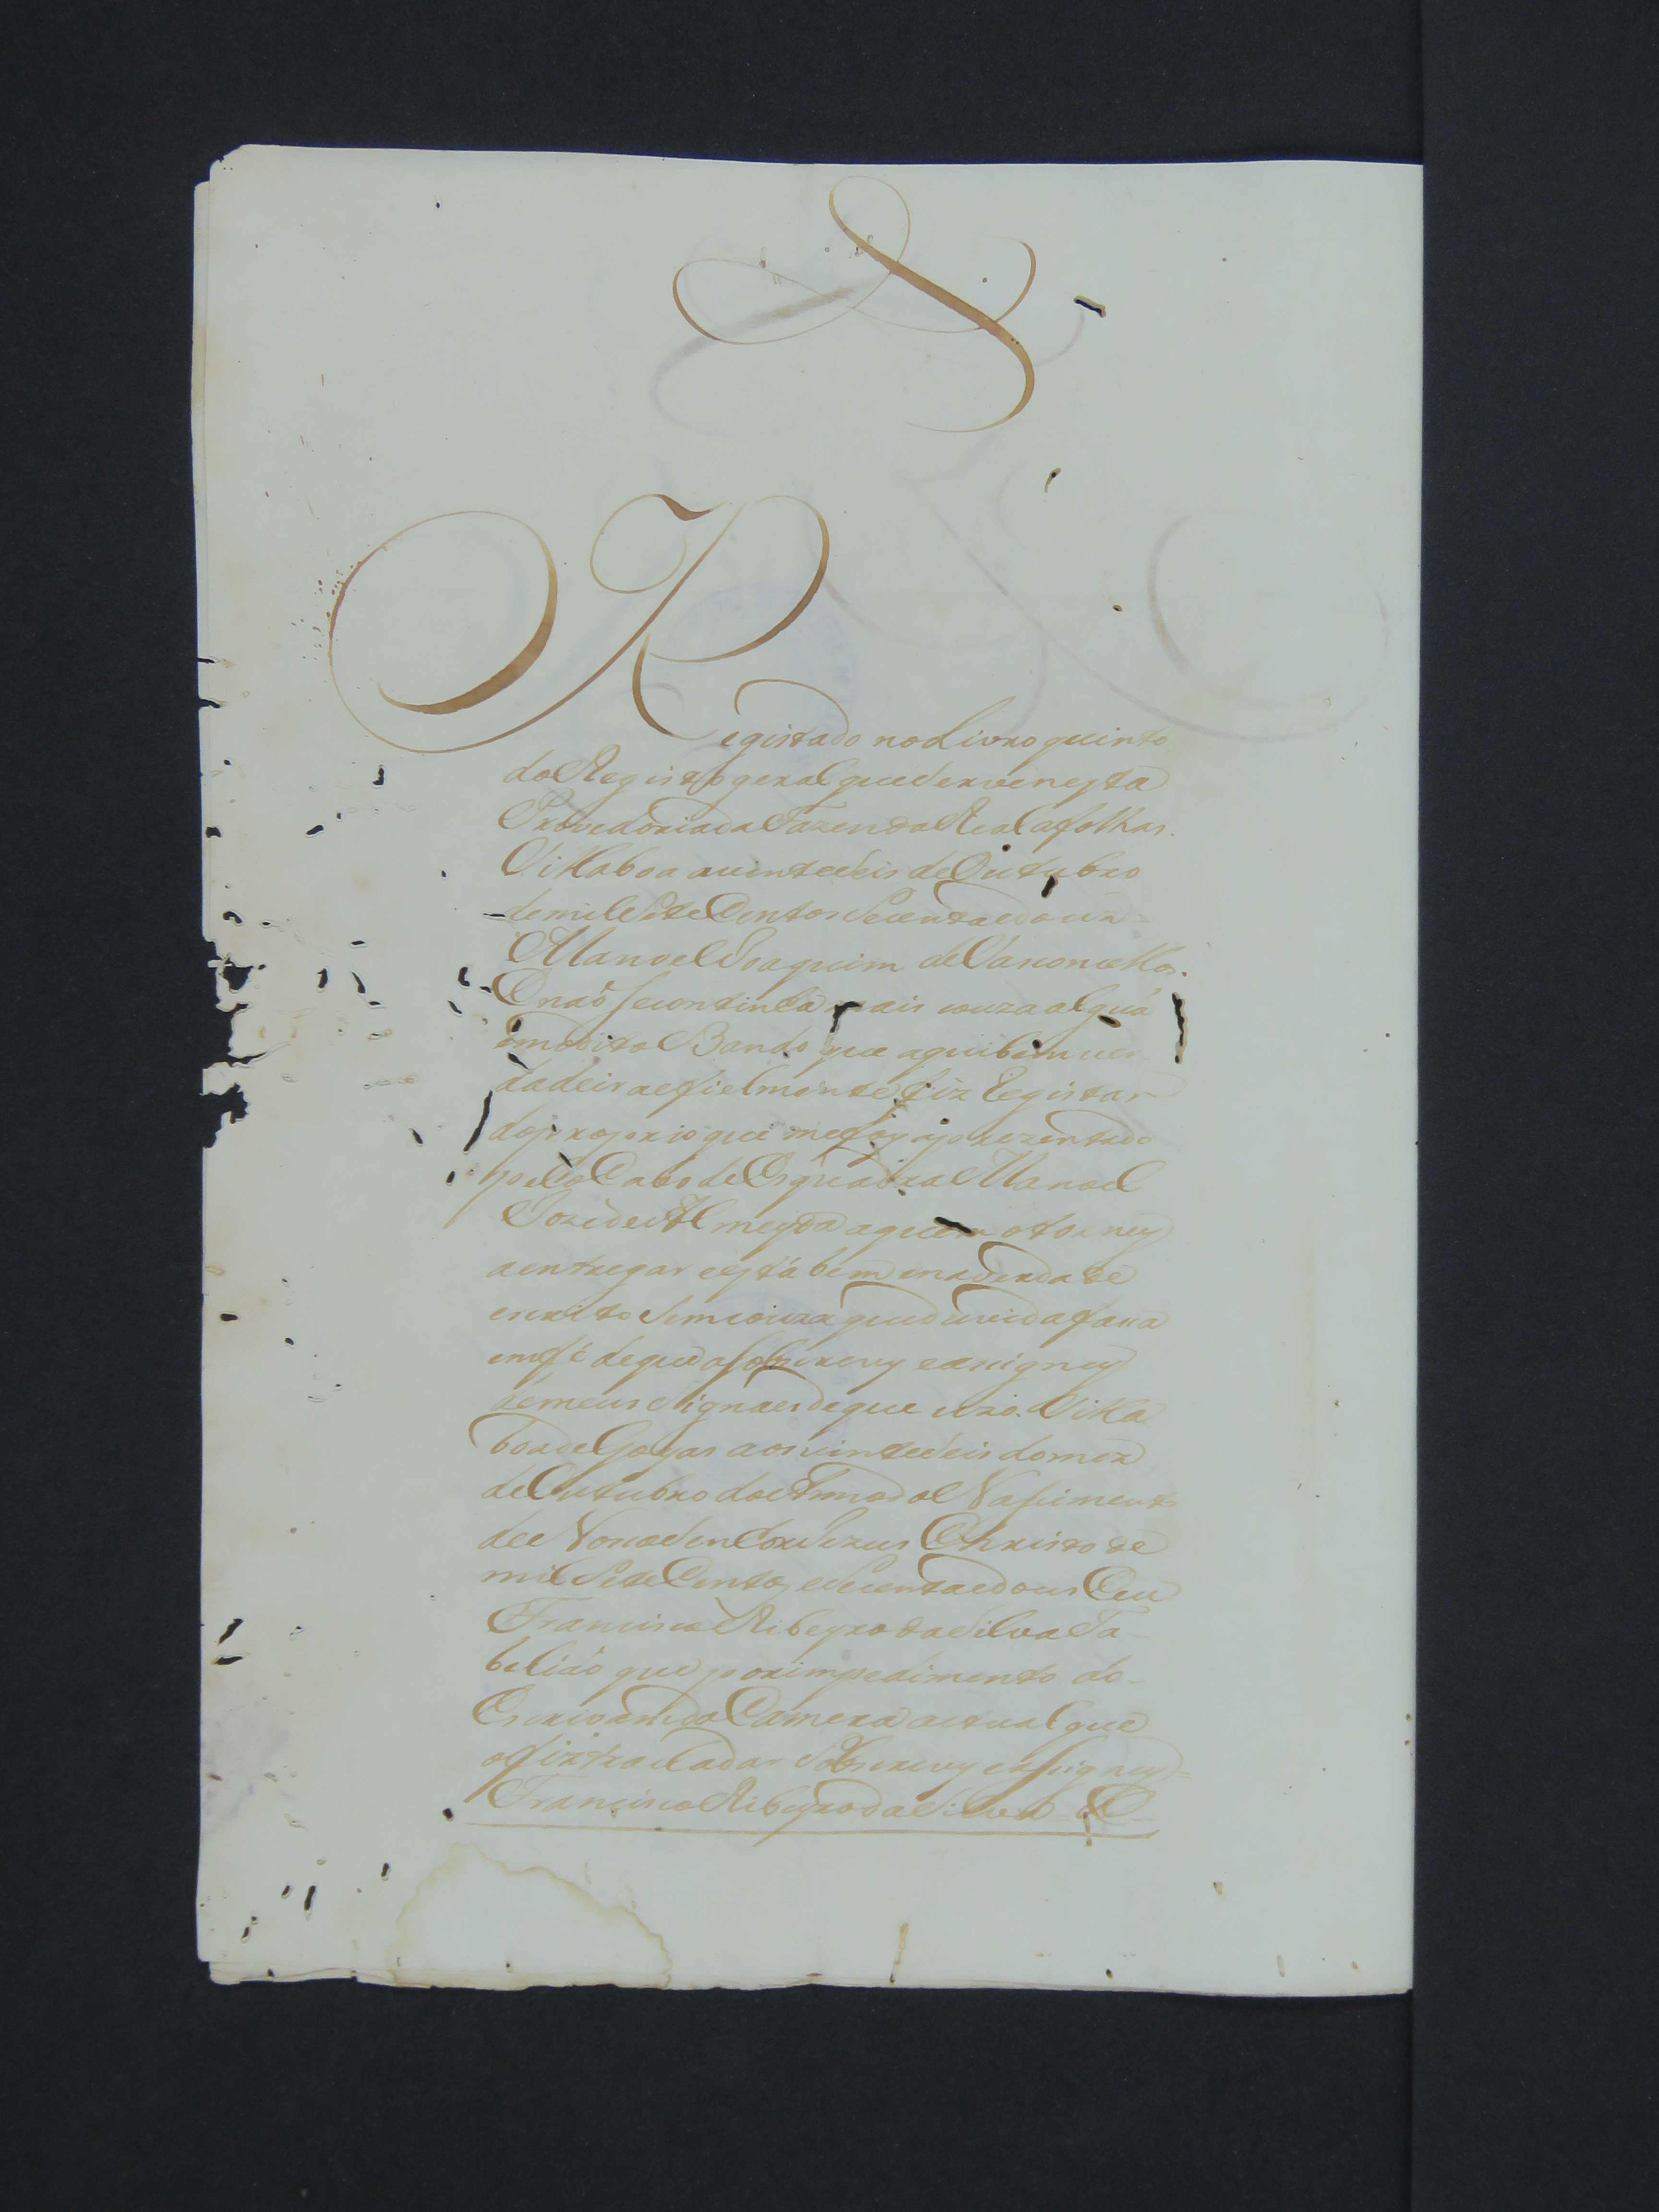 Registado no Livro quinto
do Registo geral que serve nesta
Provedoria da Fazenda Real a folhas.
Villa boa a vinte e seis de Outubro
de mil e Sete Centos Secenta e dous =
Manoel Joaquim de Vasconcellos.
E naõ se continha mais couza alguá
em o dito Bando que aqui bem ver
dadeira e fielmente fiz Registar
do proprio que me foy aprezentado
pello Cabo de Esquadra Manoel
Jozé de Almeyda a quem o torney
a entregar e está bem e na verdade
escrito sem couza que duvida faça
em fé de que o sobscrevy e assigney
de meus signaes de que uzo. Villa
boa de Goyas aos vinte e seis do mez
de Outubro do Anno do Nascimento
de Nosso Senhor Jezus Christo de
mil Sete Centos e Secenta e dous Eeu
Francisco Ribeyro da Silva Ta-
beliáo que por impedimento do-
Escrivam da Camera actual que
o fiz trasladar Sobscrevy e assigney =
Francisco Ribeyro da Silva